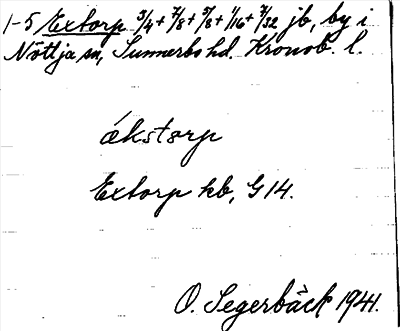 1-5 Extorp 3/4 + 7/8 + 5/8 + 1/16 + 7/32 jb, by i
Nöttja sn, Sunnerbo hd. Kronob. l.
ákstorp
Extorp kb, G 14.
O. Segerbäck 1941.